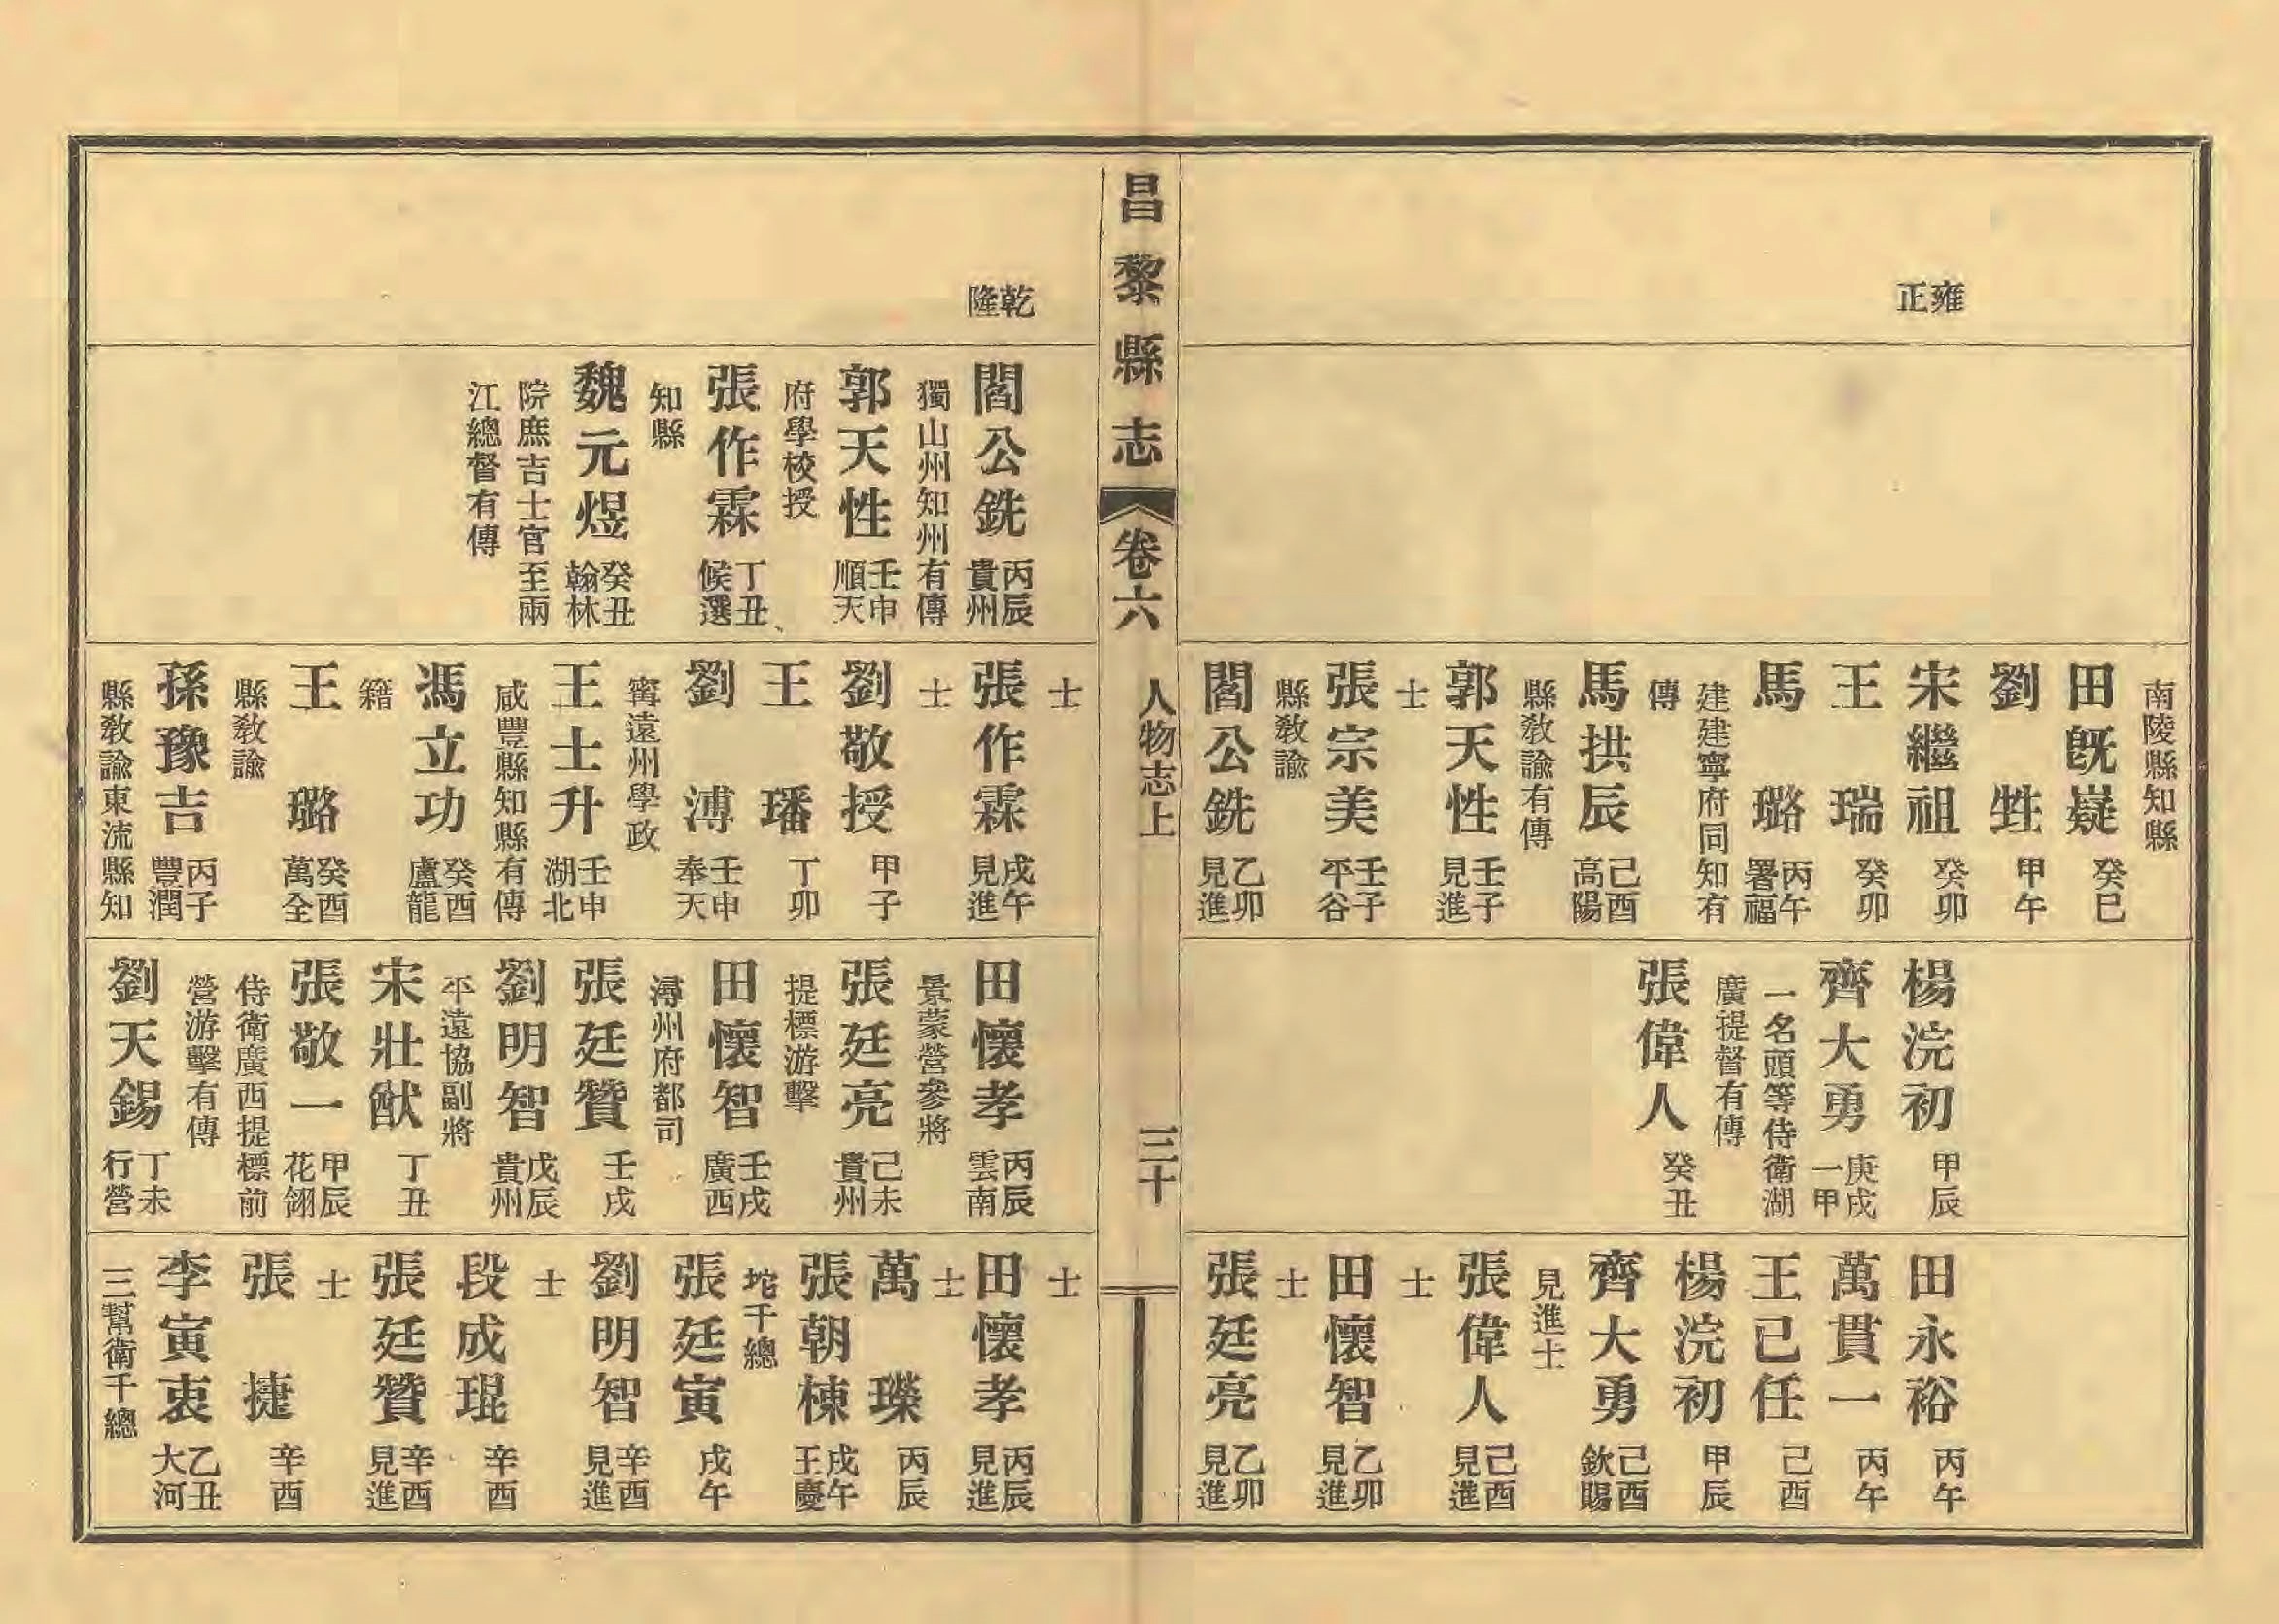 雍正
南陵縣知縣
田旣嶷癸巳
劉甡甲午
宋繼祖癸卯
王瑞癸卯
馬璐丙午署福
建建寧府同知有
傳
馬拱辰己酉高陽
縣敎諭有傳
郭天性壬子見進
士
張宗美壬子平谷
縣敎諭
閻公銑乙卯見進
楊浣初甲辰
齊大勇庚戌一甲
一名頭等侍衛湖
廣提督有傳
張偉人癸丑
田永裕丙午
萬貫一丙午
王已任己酉
楊浣初甲辰
齊大勇己酉欽賜
見進士
張偉人己酉見進
士
田懷智乙卯見進
士
張廷亮乙卯見進
昌黎縣志
卷六
人物志上
三十
乾隆
閻公銑丙辰貴州
獨山州知州有傳
郭天性壬申順天
府學校授
張作霖丁丑候選
知縣
魏元煜癸丑翰林
院庶吉士官至兩
江總督有傳
士
張作霖戊午見進
士
劉敬授甲子
王璠丁卯
劉溥壬申奉天
寗遠州學政
王士升壬申湖北
咸豐縣知縣有傳
馮立功癸酉盧龍
籍
王璐癸酉萬全
縣敎諭
孫豫吉丙子豐潤
縣敎諭東流縣知
田懷孝丙辰雲南
景蒙營參將
張廷亮己未貴州
提標游擊
田懷智壬戌廣西
潯州府都司
張廷贊壬戌
劉明智戊辰貴州
平遠協副將
宋壯猷丁丑
張敬一甲辰花翎
侍衛廣西提標前
營游擊有傳
劉天錫丁未行營
士
田懷孝丙辰見進
士
萬瓅丙辰
張朝棟戊午王慶
坨千總
張廷寅戊午
劉明智辛酉見進
士
段成琨辛酉
張廷贊辛酉見進
士
張捷辛酉
李寅衷乙丑大河
三幫衛千總